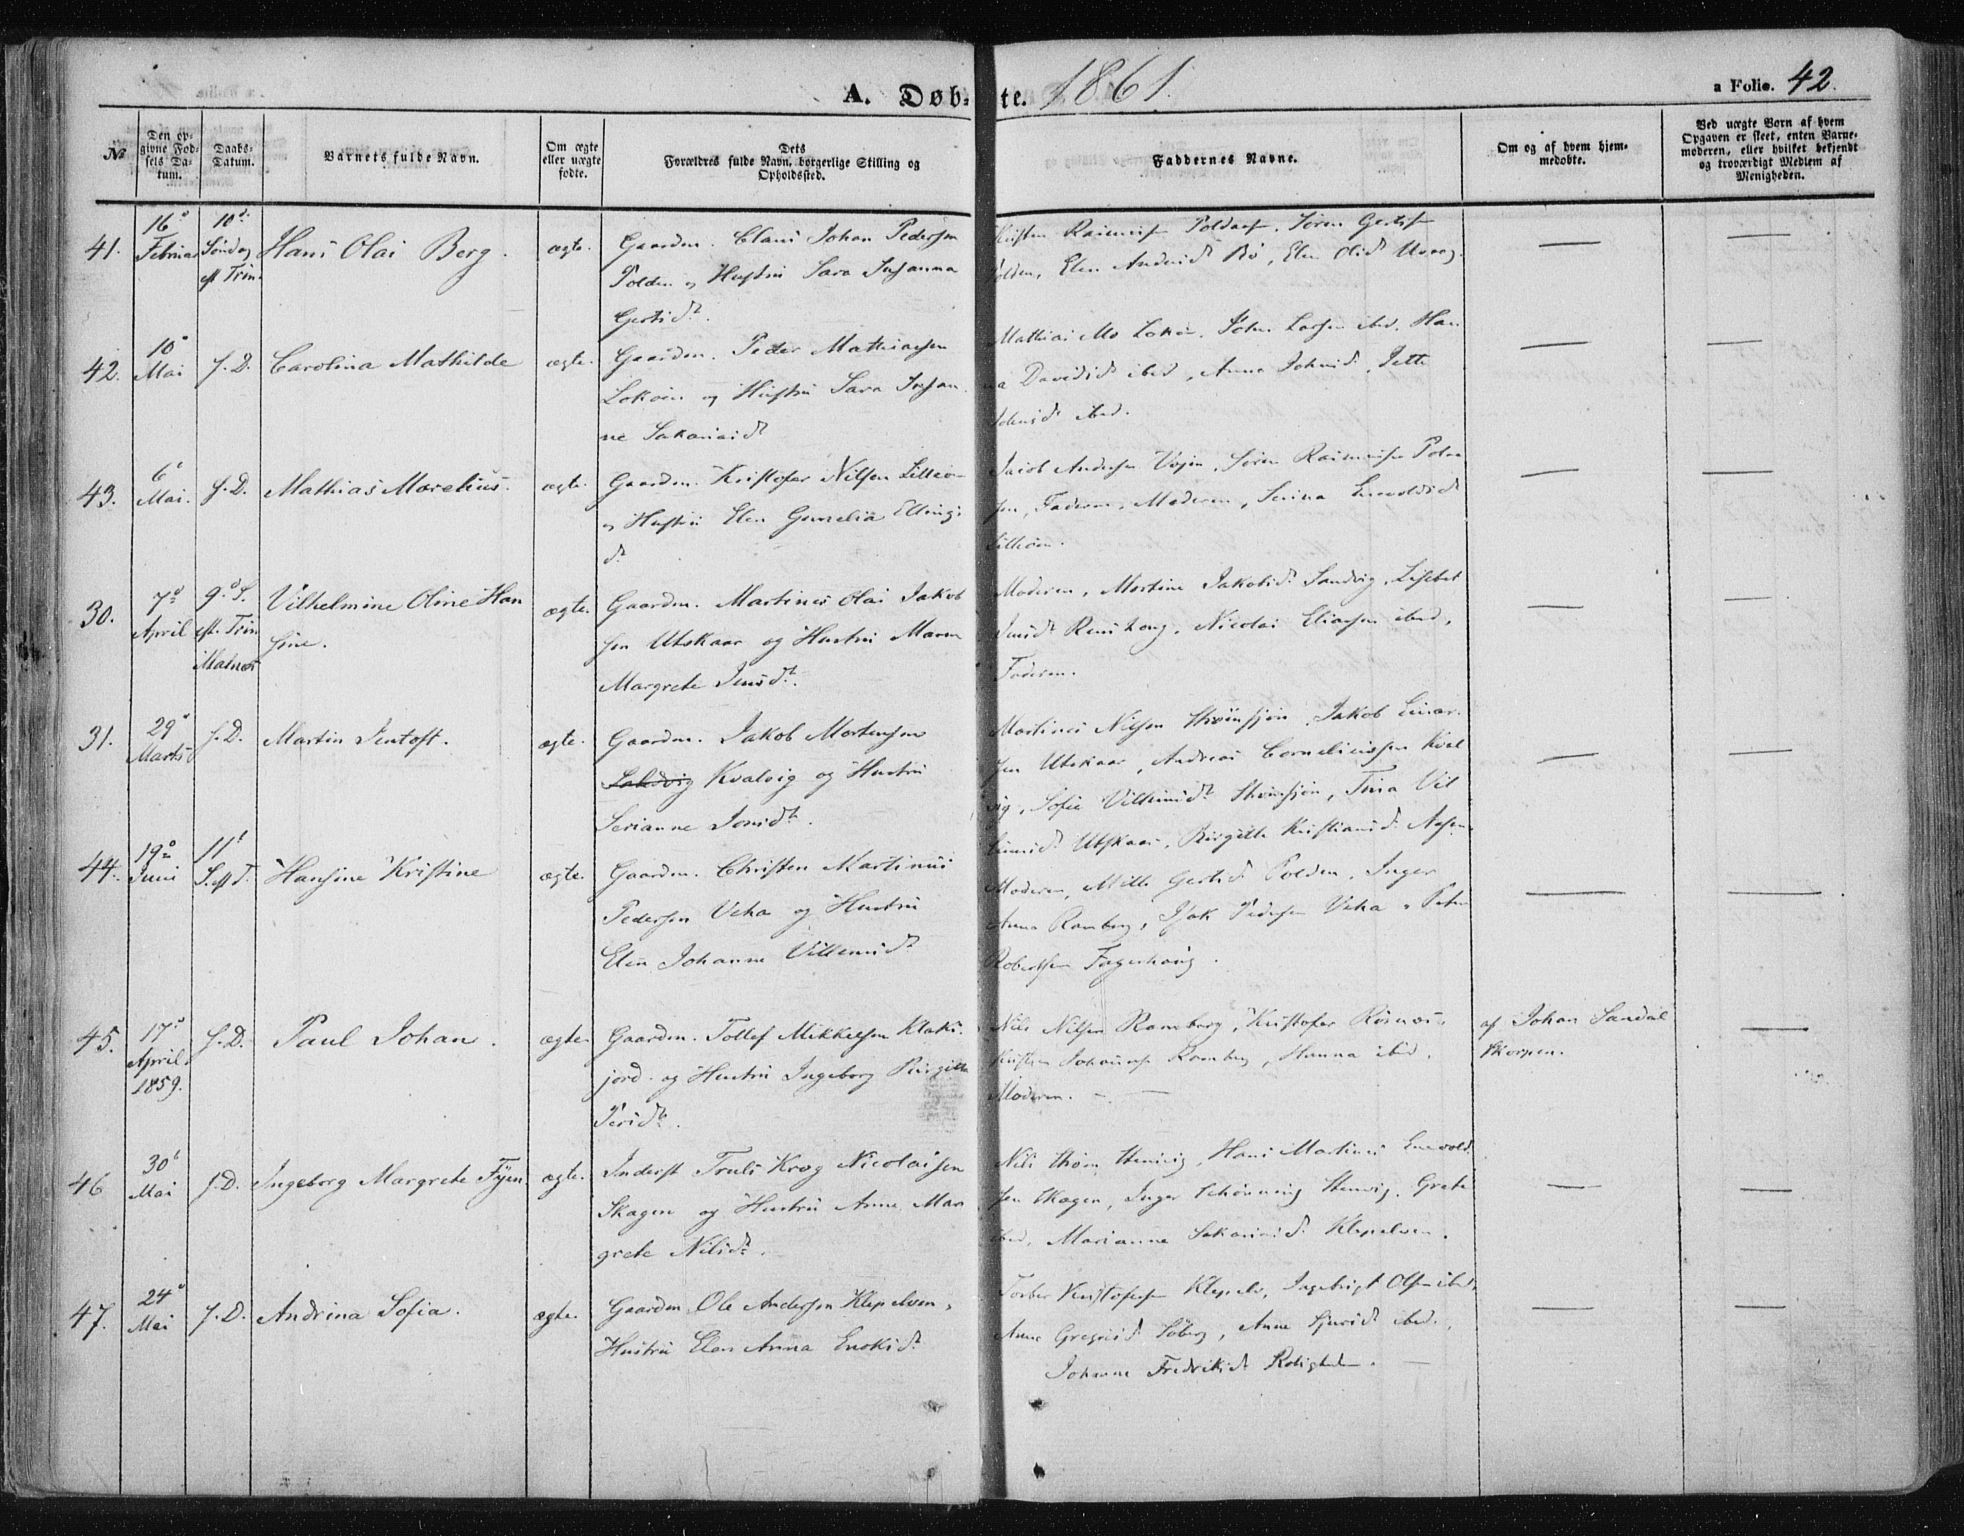 A. Døb- te. 1861.
a Folio. 42.
№
Den op-
givne Fød-
sels Da-
tum.
Daabs-
Datum.
Barnets fulde Navn.
Om ægte
eller uægte
fødte.
Dets
Forældres fulde Navn, borgerlige Stilling og
Opholdssted.
Faddernes Navne.
Om og af hvem hjem-
medøbte.
Ved uægte Børn af hvem
Opgaven er skeet, enten Barne-
moderen, eller hvilket bekjendt
og troværdigt Medlem af
Menigheden.
41.
16
Februar
10
Søndag
eft Trin
Hans Olai Berg.
ægte.
Gaardm. Claus Johan Pedersen
Polden og Hustru Sara Susanna
Gertsd.
Søren Gertsen
Polden, Elen Andersd Bø, Elen Olsd
42.
10
Mai
s. D.
Carolina Mathilde
ægte.
Gaardm. Peder Mathiassen
Lokøen og Hustru Sara Susan
ne Sakariasd
Mathias Mo Lokøen, Larsen ibd, Han
na Davidsd ibid, Anna Johnsd, Jette
ibid.
43.
6
Mai.
s. D.
Mathias Morelius.
ægte.
Gaardm. Kristofer Nilsen Lilleøen
og Hustru Elen Gunelia Ellings
d
Jacob Andersen Søren Polde
Faderen, Moderen, Serina Enevoldsd
Lilleøen.
30.
7
April
9 S.
eft. Trin
Malnæs
Vilhelmine Oline Han
sine.
ægte.
Gaardm. Martines Olai Jakob
sen Utskaar og Hustru Maren
Margrete Jensd.
Moderen, Martine Jakobsd Sandvig, Lisebet
Jensd Nicolai Eliassen ibid,
Faderen.
31.
29
Marts
s. D.
Martin Jentoft.
ægte.
Gaardm. Jakob Mortensen
Kvalvig og Hustru
Serianne Jonsd.
Martines Nilsen Jakob Einar
sen Utskaar, Andreas Corneliussen Kval
vig, Sofie Tina Vil
Utskaar, Birgitte Kristiansd
44.
19
Juni
11
S. eft T.
Hansine Kristine
ægte.
Gaardm. Christen Martinus
Pedersen Veha og Hustru
Elen Johanna Villumsd
Moderen, Mille Gertsd Polden, Inger
Anna Ramberg, Isak Pedersen Veha, Peter
Robertsen Fagerhaug.
45.
17
April
1859.
s. D.
Paul Johan.
ægte.
Gaardm. Tollef Mikkelsen Klaks
jord og Hustru Ingeborg Birgitta
Persd.
Nils Nilsen Ramberg, Kristofer Risnæs,
Kristen Johansen Ramberg, Hanna ibid.
Moderen.
af Johan Sandal
Skorpen.
46
30
Mai
s. D.
Ingeborg Margrete Fyen
ægte.
Inderst Truls Krog Nicolaisen
Skagen og Hustru Anne Mar
grete Nilsd.
Nils Hans Martinus Enevold
sen Skagen, Inger Schønning Grete
ibid, Marianne Sakariasd Klepelven.
47.
24
Mai
s. D.
Andrina Sofia.
ægte.
Gaardm. Ole Andersen Klepelven,
Hustru Elen Anna Enoksd
Torber Kristofersen Klepelv, Ingebrigt Olsen ibd,
Anne Gregersd Søberg, Anne Sjursd ibid.,
Johanne Fredriksd Roligheden.